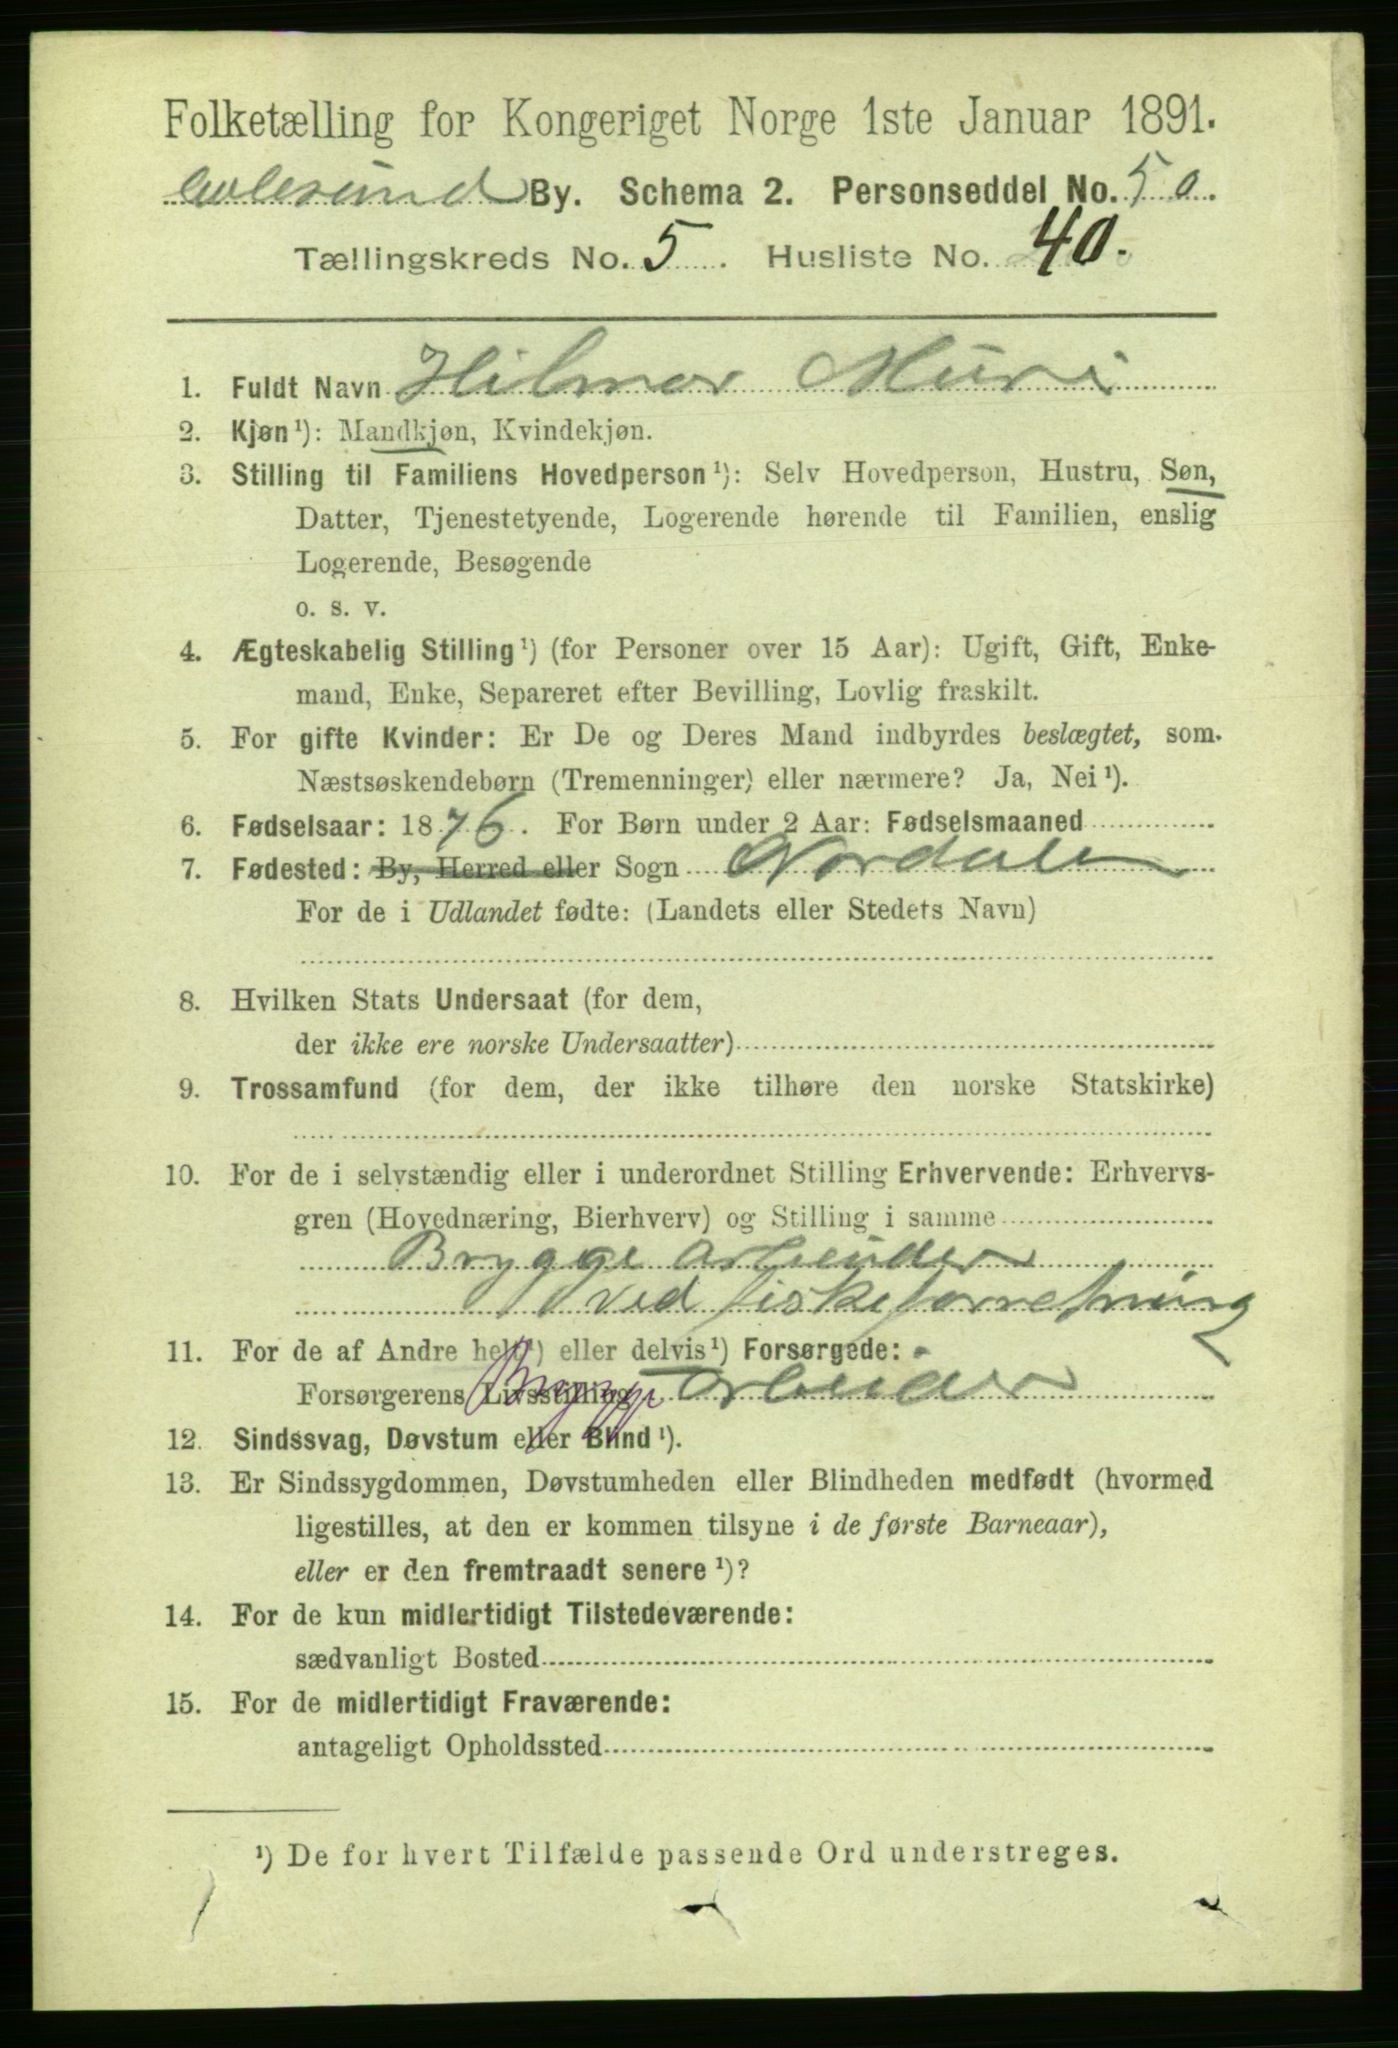 Folketælling for Kongeriget Norge 1ste Januar 1891.
Aalesund By. Schema 2. Personseddel No. 50.
Tællingskreds No. 5. Husliste No. 40.
1. Fuldt Navn Hilmar Muri
2. Kjøn ¹): Mandkjøn, Kvindekjøn.
3. Stilling til Familiens Hovedperson ¹): Selv Hovedperson, Hustru, Søn,
Datter, Tjenestetyende, Logerende hørende til Familien, enslig
Logerende, Besøgende
o. s. v.
4. Ægteskabelig Stilling ¹) (for Personer over 15 Aar): Ugift, Gift, Enke-
mand, Enke, Separeret efter Bevilling, Lovlig fraskilt.
5. For gifte Kvinder: Er De og Deres Mand indbyrdes beslægtet, som
Næstsøskendebørn (Tremenninger) eller nærmere? Ja, Nei ¹).
6. Fødselsaar: 1876. For Børn under 2 Aar: Fødselsmaaned
7. Fødested: By, Herred eller Sogn Nordalen
For de i Udlandet fødte: (Landets eller Stedets Navn)
8. Hvilken Stats Undersaat (for dem,
der ikke ere norske Undersaatter)
9. Trossamfund (for dem, der ikke tilhøre den norske Statskirke)
10. For de i selvstændig eller i underordnet Stilling Erhvervende: Erhvervs-
gren (Hovednæring, Bierhverv) og Stilling i samme
Brygge arbeider
ved fiskeforretning
11. For de af Andre helt ¹) eller delvis ¹) Forsørgede:
Forsørgerens Livsstilling Brygge arbeider
12. Sindssvag, Døvstum eller Blind ¹).
13. Er Sindssygdommen, Døvstumheden eller Blindheden medfødt (hvormed
ligestilles, at den er kommen tilsyne i de første Barneaar),
eller er den fremtraadt senere ¹)?
14. For de kun midlertidigt Tilstedeværende:
sædvanligt Bosted
15. For de midlertidigt Fraværende:
antageligt Opholdssted
¹) De for hvert Tilfælde passende Ord understreges.